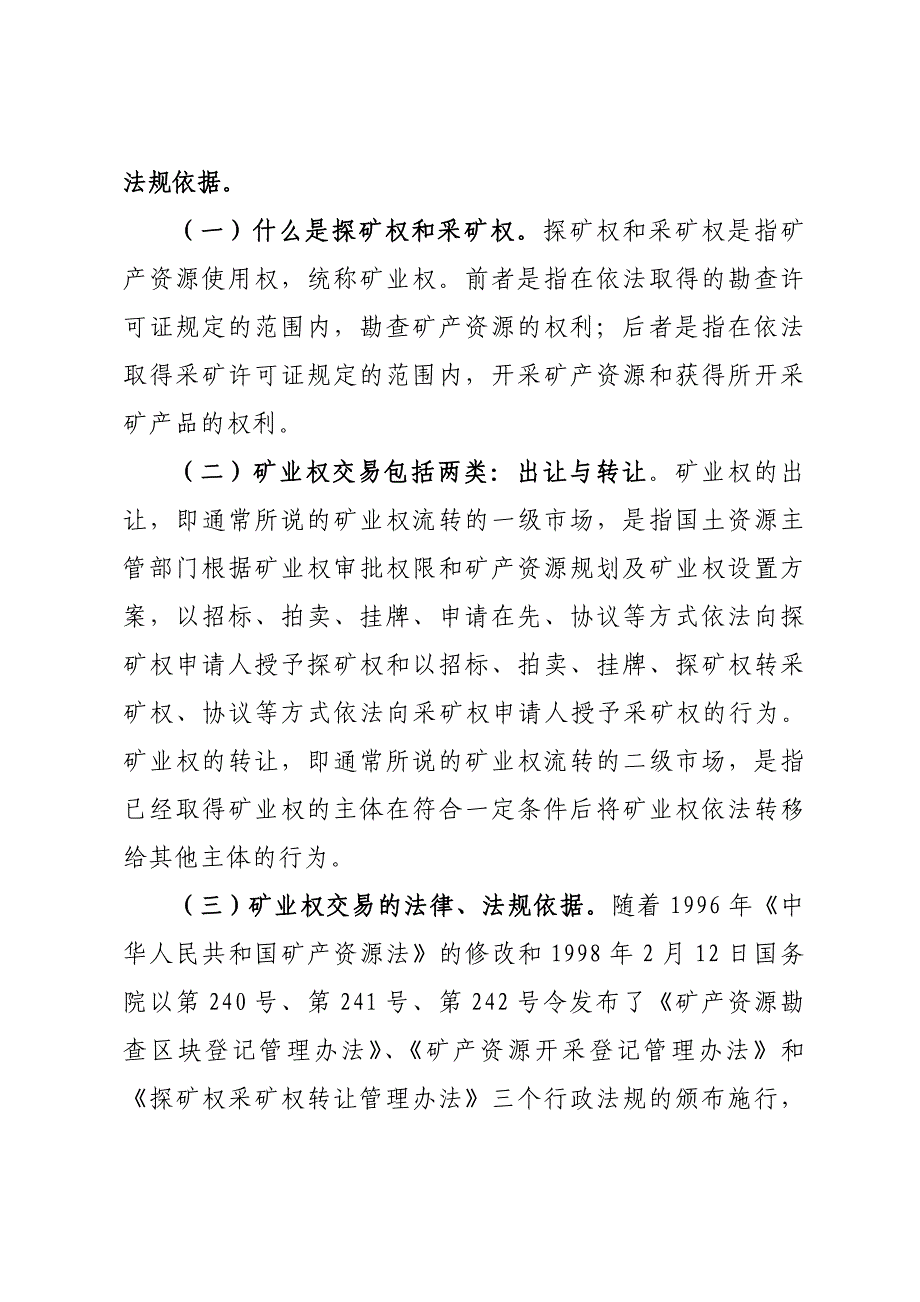 法规依据。
（一）什么是探矿权和采矿权。探矿权和采矿权是指矿
产资源使用权，统称矿业权。前者是指在依法取得的勘查许
可证规定的范围内，勘查矿产资源的权利；后者是指在依法
取得采矿许可证规定的范围内，开采矿产资源和获得所开采
矿产品的权利。
（二）矿业权交易包括两类：出让与转让。矿业权的出
让，即通常所说的矿业权流转的一级市场，是指国土资源主
管部门根据矿业权审批权限和矿产资源规划及矿业权设置方
案，以招标、拍卖、挂牌、申请在先、协议等方式依法向探
矿权申请人授予探矿权和以招标、拍卖、挂牌、探矿权转采
矿权、协议等方式依法向采矿权申请人授予采矿权的行为。
矿业权的转让，即通常所说的矿业权流转的二级市场，是指
已经取得矿业权的主体在符合一定条件后将矿业权依法转移
给其他主体的行为。
（三）矿业权交易的法律、法规依据。随着 1996 年《中
华人民共和国矿产资源法》的修改和 1998 年 2 月 12 日国务
院以第 240 号、第 241 号、第 242 号令发布了《矿产资源勘
查区块登记管理办法》、《矿产资源开采登记管理办法》和
《探矿权采矿权转让管理办法》三个行政法规的颁布施行，